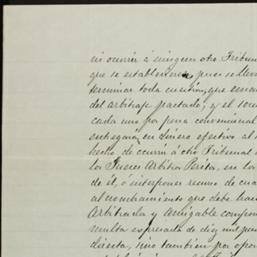 ni ocurrir á ningun otro Tribun
que se establezca, pues se
terminar toda cuestion, que
del arbitraje pactado; y el
cada uno por pena convencional
entregará, en dinero efectivo al
hecho de ocurrir á otro Tribunal
los Jueces Arbitros Perito, en la
de él, ó interponer recurso de cual
al nombramiento que debe hac
Arbitrada y amigable compon
multa espresada de diez mil pes
directa, sino tambien por opo